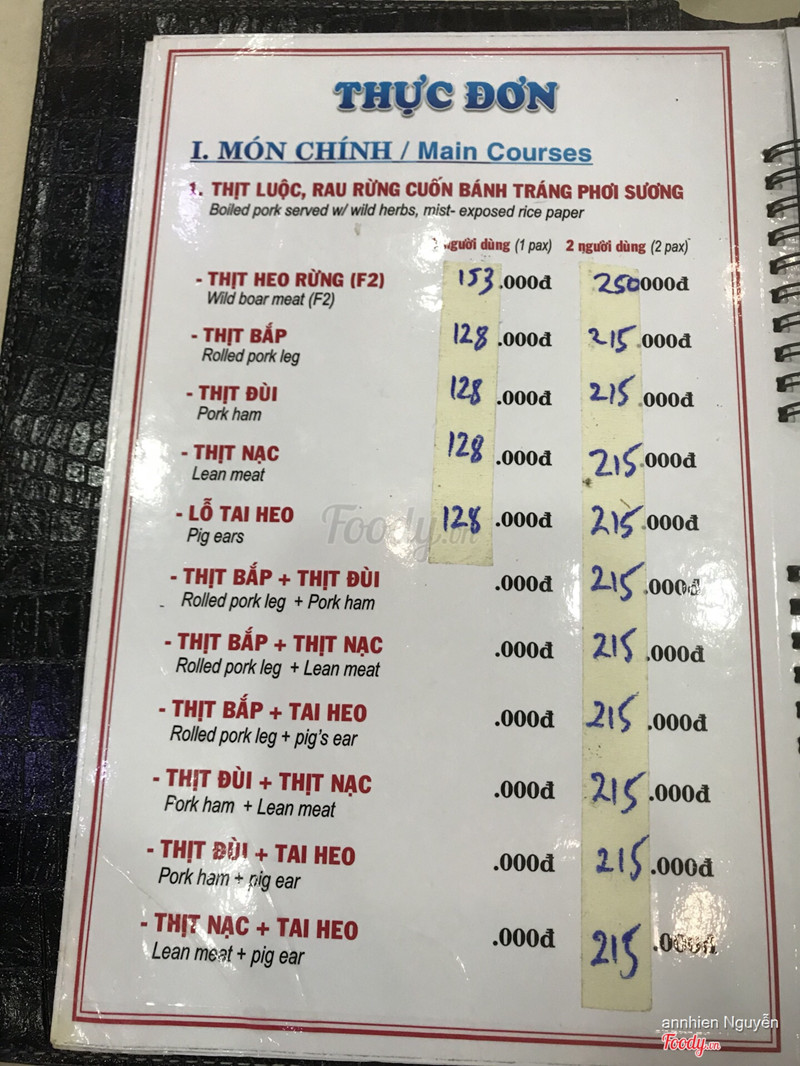 THỰC ĐƠN
I. MÓN CHÍNH / Main Courses
1. THỊT LUỘC, RAU RỪNG CUỐN BÁNH TRÁNG PHƠI SƯƠNG
Boiled pork served w/ wild herbs, mist- exposed rice paper
người dùng (1 pax) 2 người dùng (2 pax)
- THỊT HEO RỪNG (F2) 153.000đ 250000đ
Wild boar meat (F2)
- THỊT BẮP 128.000đ 215.000đ
Rolled pork leg
- THỊT ĐÙI 128.000đ 215.000đ
Pork ham
- THỊT NẠC 128.000đ 215.000đ
Lean meat
- LỖ TAI HEO 128.000đ 215.000đ
Pig ears
Foody.vn
- THỊT BẮP + THỊT ĐÙI .000đ 215.000đ
Rolled pork leg + Pork ham
- THỊT BẮP + THỊT NẠC .000đ 215.000đ
Rolled pork leg + Lean meat
- THỊT BẮP + TAI HEO .000đ 215.000đ
Rolled pork leg + pig's ear
- THỊT ĐÙI + THỊT NẠC .000đ 215.000đ
Pork ham + Lean meat
- THỊT ĐÙI + TAI HEO .000đ 215.000đ
Pork ham + pig ear
- THỊT NẠC + TAI HEO .000đ 215.000đ
Lean meat + pig ear
annhien Nguyễn
Foody.vn